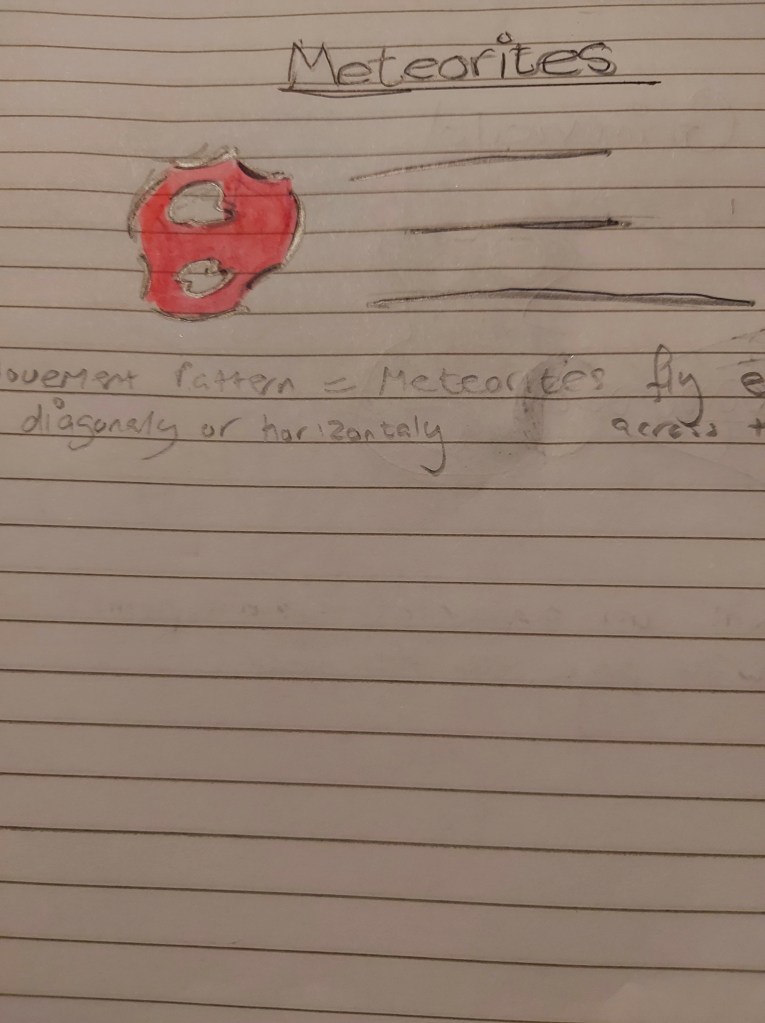 Meteorites
ovement Pattern = Meteorites fly e
diagonaly or horizontaly across t